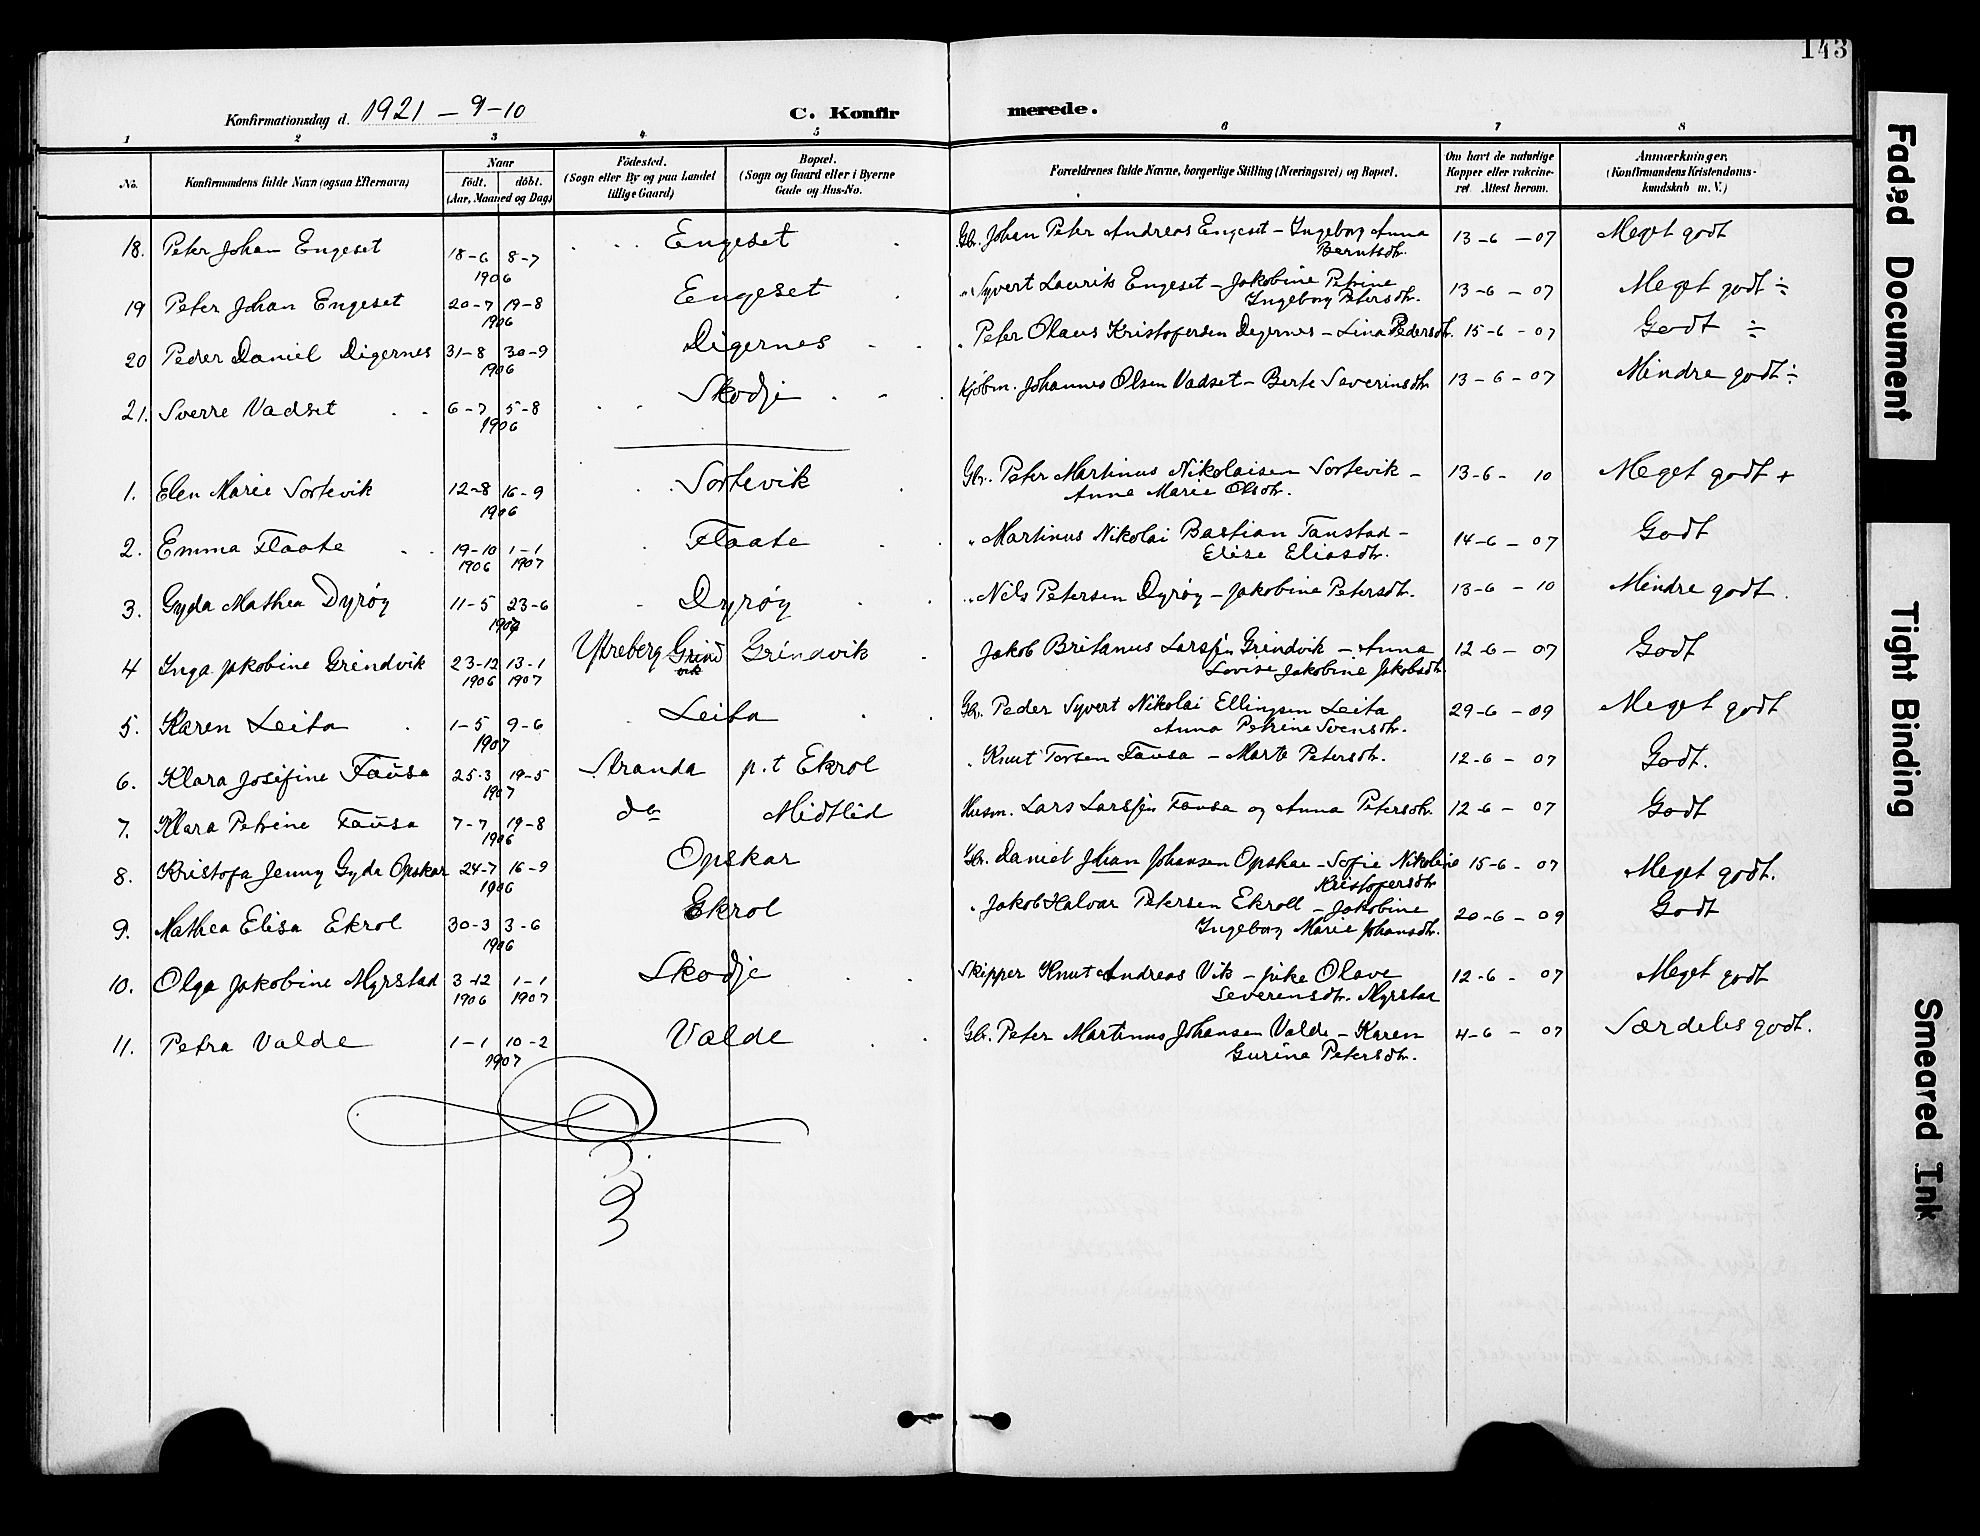 143
Konfirmationsdag d. 1921 - 9-10 C. Konfirmerede.
1 2 3 4 5 6 7 8
No. Konfirmandens fulde Navn (ogsaa Efternavn) Naar født. døbt. (Aar, Maaned og Dag) Fødested. (Sogn eller By og paa Landet tillige Gaard) Bopæl. (Sogn og Gaard eller i Byerne Gade og Hus-No. Forældrenes fulde Navne, borgerlige Stilling (Næringsvei) og Bopæl. Om havt de naturlige Kopper eller vakcineret. Attest herom. Anmærkninger. (Konfirmandens Kristendomskundskab m. V.)
18. Peter Johan Engeset 18-6 8-7 Engeset Gbr. Johan Peter Andreas Engeset - Ingeborg Anna 13-6-07 Meget godt
1906 Berntsdtr.
19 Peter Johan Engeset 20-7 19-8 Engeset " Syvert Laurits Engeset - Jakobine Petrine 13-6-07 Meget godt ÷
1906 Ingeborg Petersdtr.
20 Peder Daniel Digernes 31-8 30-9 Digernes " Peter Olaus Kristofersen Degernes - Lina Pedersdt. 15-6-07 Godt ÷
1906
21. Sverre Vadset 6-7 5-8 Skodje Kjøbm. Johannes Olsen Vadset - Berte Severinsdtr 13-6-07 Mindre godt ÷
1906
1. Elen Marie Sortevik 12-8 16-9 Sortevik Gbr. Peter Martinus Nikolaisen Sortevik - 13-6-10 Meget godt +
1906 Anne Marie Olsdtr.
2. Emma Flaate 19-10 1-1 Flaate " Martinus Nikolai Bastian Tanstad - 14-6-07 Godt
1906 1907 Elise Eliasdtr.
3. Gyda Mathea Dyrøy 11-5 23-6 Dyrøy " Nils Petersen Dyrøy - Jakobine Petersdt. 13-6-10 Mindre godt.
4 Inga Jakobine Grindvik 23-12 13-1 Ytreberg Grindvik Grindvik Jakob Britanus Larssen Grindvik - Anna 12-6-07 Godt
1906 1907 Lovise Jakobine Jakobsdtr.
5. Karen Leita 1-5 9-6 Leita Gbr. Peder Syvert Nikolai Ellingsen Leita 29-6-09 Meget godt
1907 Anna Petrine Svensdtr.
6. Klara Josifine Fausa 25-3 19-5 Stranda p.t Ekrol " Knut Torsen Fausa - Marte Petersdtr. 12-6-07 Godt.
1907
7. Klara Petrine Fausa 7-7 19-8 do Midtlid Husm. Lars Larssen Fausa og Anna Petersdtr. 12-6-07 Godt
1906
8. Kristofa Jenny Gyda Opskar 24-7 16-9 Opskar Gbr. Daniel Johan Johansen Opskar - Sofie Nikoline 15-6-07 Meget godt.
1906 Kristofersdtr
9. Mathea Elisa Ekrol 30-3 3-6 Ekrol " Jakob Halvar Petersen Ekroll - Jakobine 20-6-09 Godt
1906 Ingeborg Marie Johansdtr.
10. Olga Jakobine Myrstad 3-12 1-1 Skodje Skipper Knut Andreas Vik - Olave 12-6-07 Meget godt
1906 1907 Severensdtr. Myrstad
11. Petra Valde 1-1 10-2 Valde Gbr. Peter Martinus Johansen Valde - Karen 4-6-07 Særdeles godt.
1907 Gurine Petersdtr.
Faded Document
Tight Binding
Smeared Ink